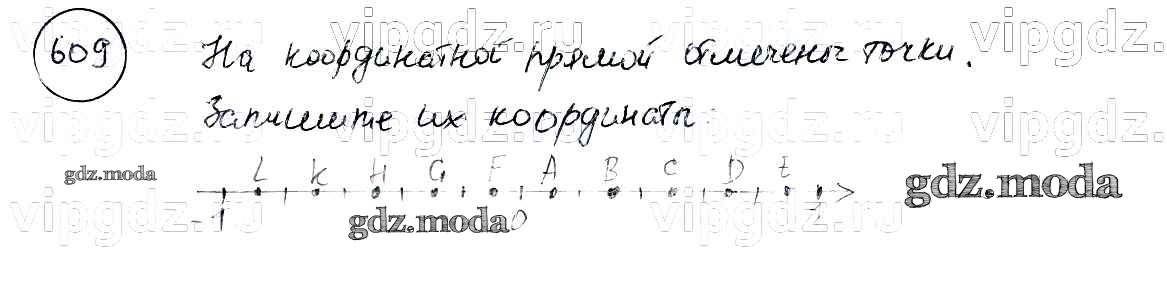 vipgdz.ru vipgdz.ru vipgdz.ru vipgdz.
609 На координатной прямой отмечены точки.
Запишите их координаты:
vipgdz.ru vipgdz.ru vipgdz.ru vipgdz.
L K H G F A B C D E
gdz.moda gdz.moda
-1 0 1
gdz.moda
vipgdz.ru vipgdz.ru vipgdz.ru vipgdz.